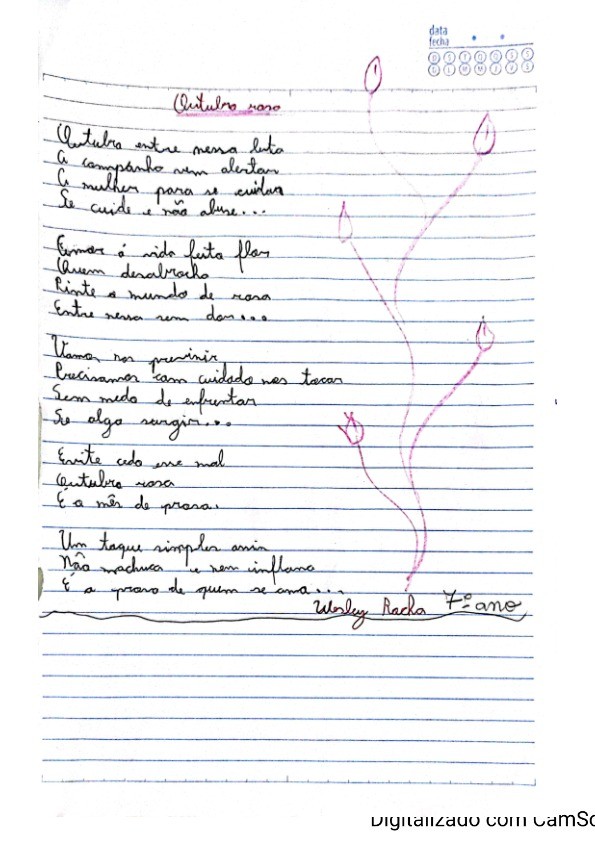 data
fecha
D S T Q Q S S
D L M M J V S
Outubro rosa
Outubro entre nessa luta
A campanha vem alertar
A mulher para se cuidar
Se cuide e não abuse...
a vida feita flor
Quem desabrocha
Pinte o mundo de rosa
Entre nessa sem dor...
Vamos nos previnir
Precisamos com cuidado nos tocar
Sem medo de enfrentar
Se algo surgir...
Evite cedo esse mal
Outubro rosa
É o mês de prosa.
Um toque simples assim
Não machuca e nem inflama
É a prova de quem se ama...
Wesley Rocha 7º ano
Digitalizado com CamSc